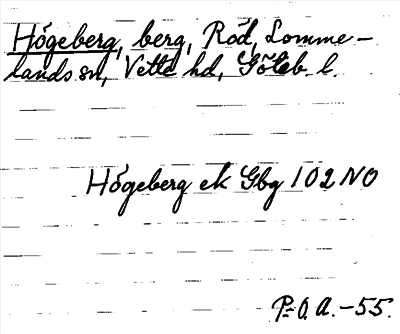 Högeberg, berg, Röd, Lomme-
lands sn, Vette hd, Göteb. l.
Högeberg ek Gbg 102 NO
P-O. A. -55.